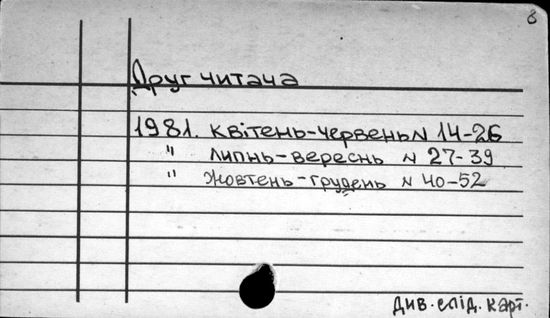 8
Друг читача
1981. квітень-червень N 14-26
" липнь-вереснь N 27-39
" жовтень-грудень N 40-52
див. слід. карт.